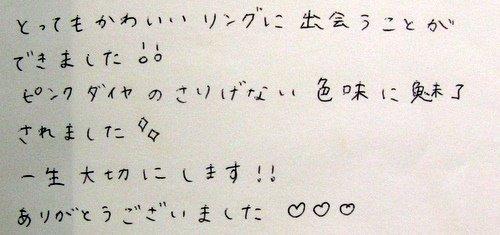 とってもかわいい リングに 出会うことが
できました!!
ピンクダイヤ の さりげない 色味 に 魅了
されました✧✧
一生 大切に します!!
ありがとうございました ♡♡♡